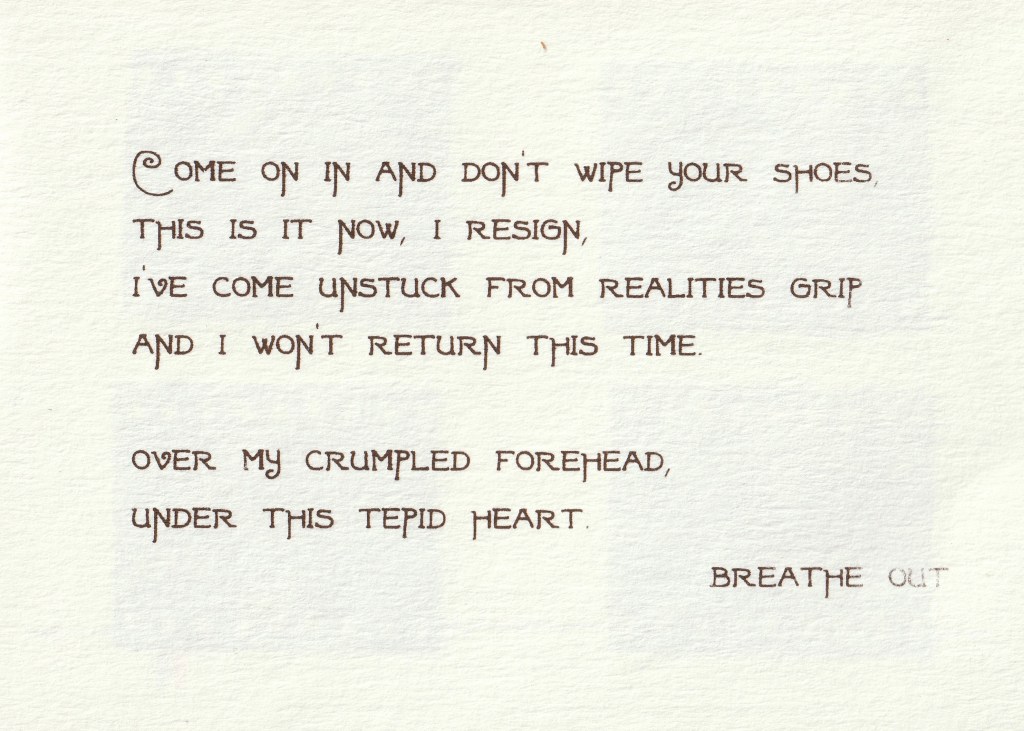 Come on in and don't wipe your shoes,
this is it now, I resign,
I've come unstuck from realities grip
and I won't return this time.
over my crumpled forehead,
under this tepid heart.
breathe out